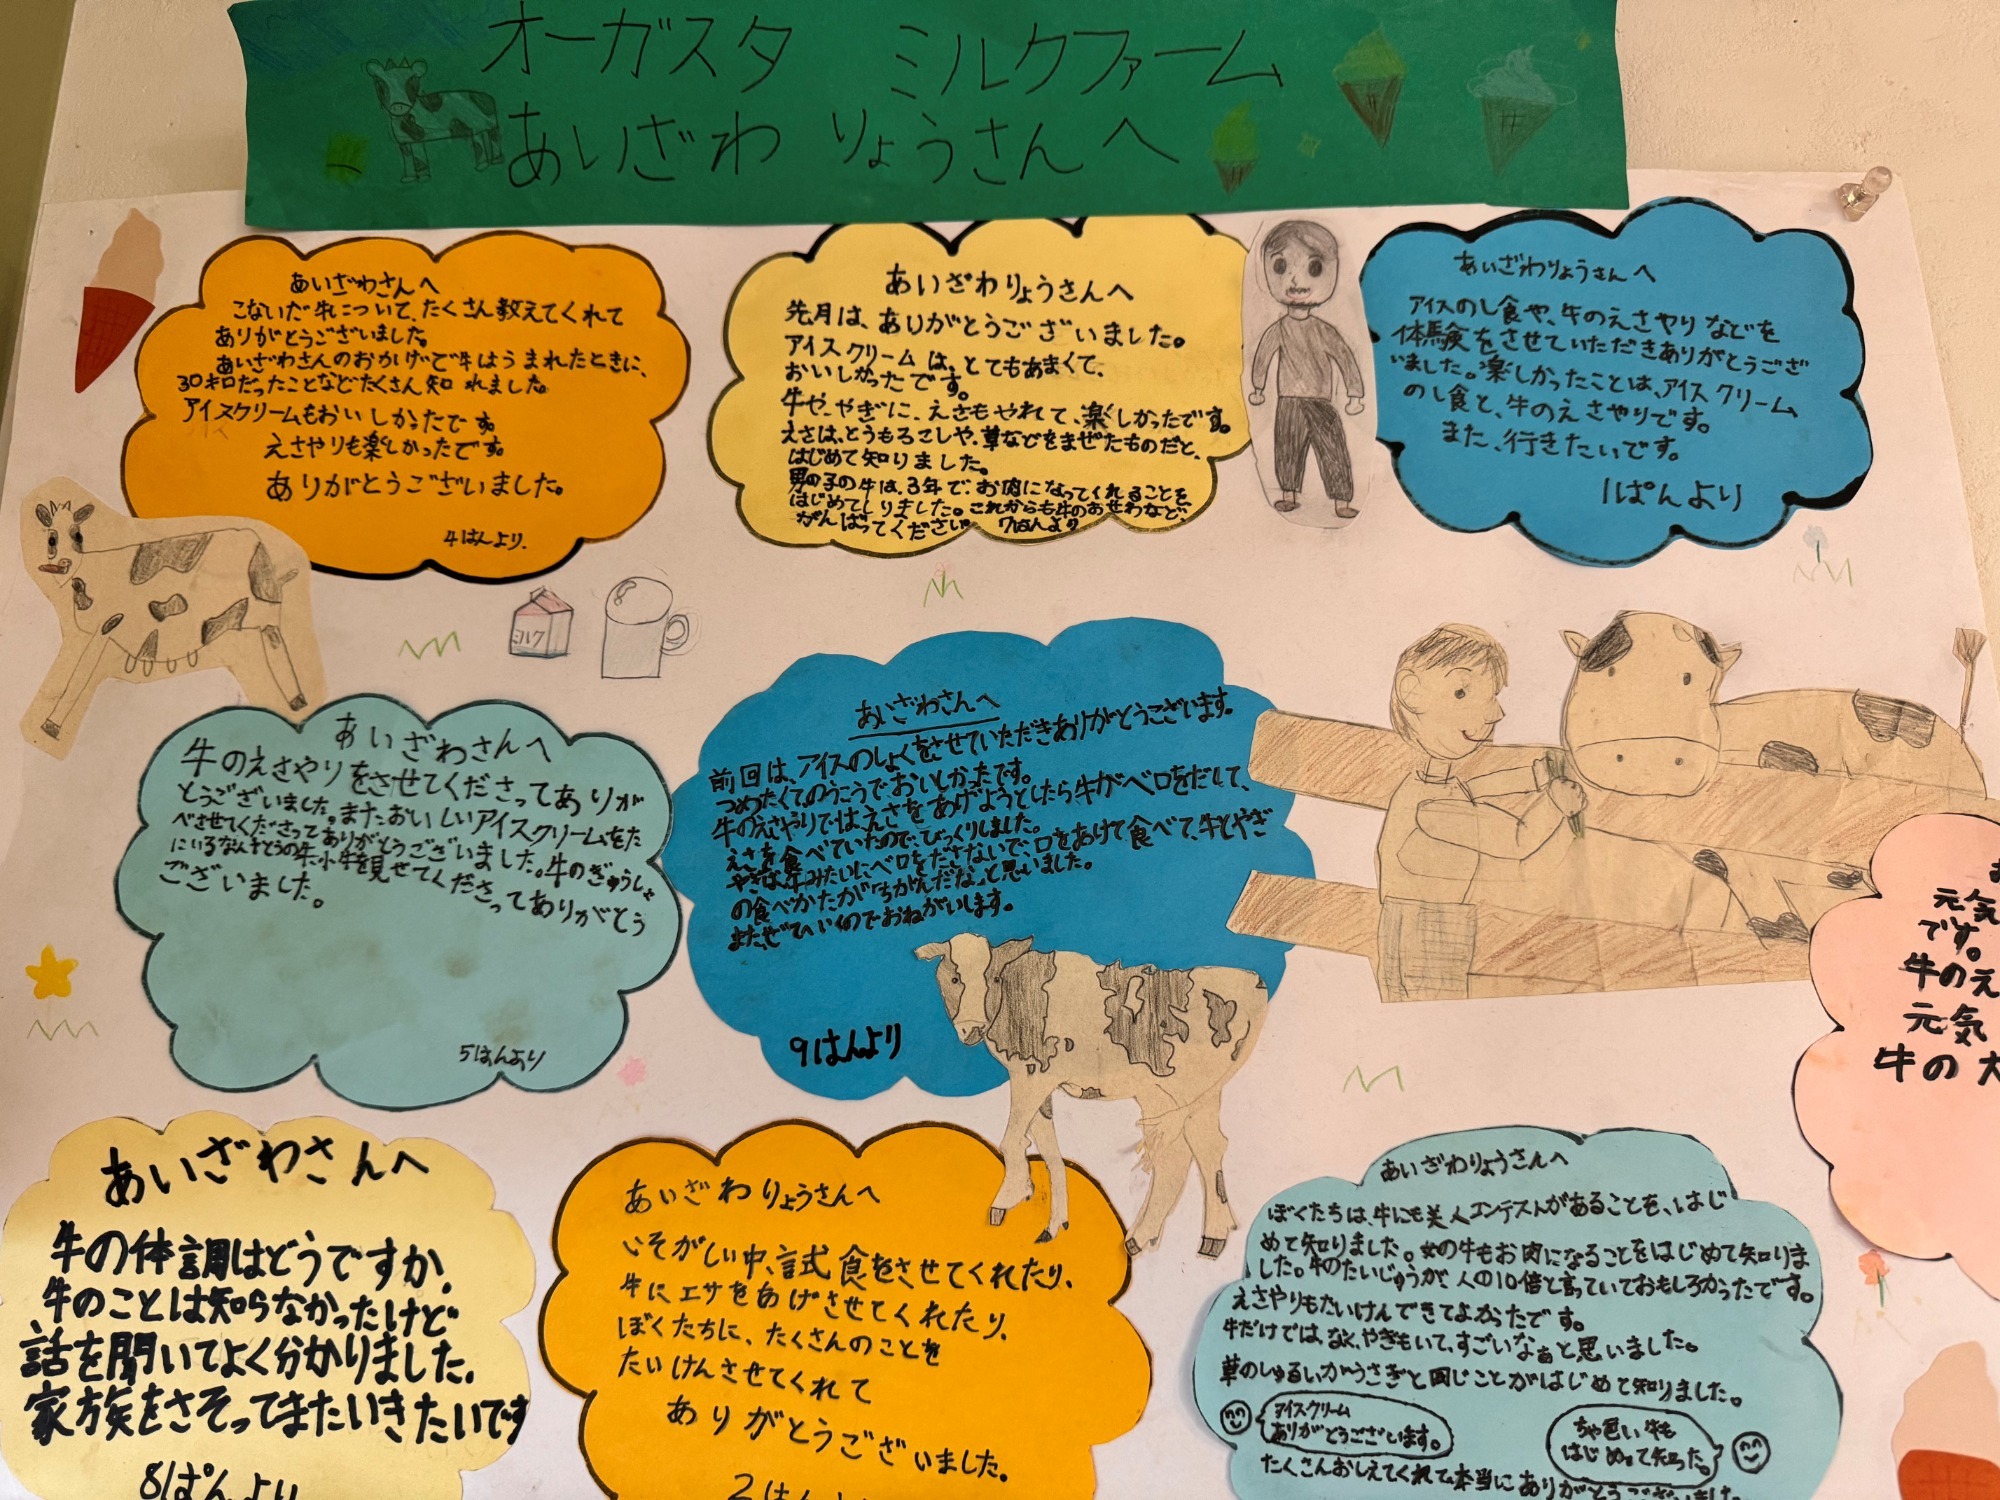 オーガスタ ミルクファーム
あいざわ りょうさんへ
あいざわさんへ
こないだ牛について、たくさん教えてくれて
ありがとうございました。
あいざわさんのおかげで牛はうまれたときに、
30キロだったことなどたくさん知れました。
アイスクリームもおいしかったです。
えさやりも楽しかったです。
ありがとうございました。
4はんより.
あいざわりょうさんへ
先月は、ありがとうございました。
アイスクリームは、とてもあまくて、
おいしかったです。
牛や、やぎに、えさもやれて、楽しかったです。
えさは、とうもろこしや、草などをまぜたものだと、
はじめて知りました。
男の子の牛は、3年で、お肉になってくれることを
はじめてしりました。これからも牛のおせわなど、
がんばってください。 7はんより
あいざわりょうさんへ
アイスのし食や、牛のえさやりなどを
体験をさせていただきありがとうござ
いました。楽しかったことは、アイスクリーム
のし食と、牛のえさやりです。
また、行きたいです。
1ぱんより
ミルク
あいざわさんへ
牛のえさやりをさせてくださってありが
とうございました。またおいしいアイスクリームをた
べさせてくださってありがとうございました。牛のぎゅうしゃ
にいるなんとうの牛、小牛を見せてくださってありがとう
ございました。
5はんより
あいざわさんへ
前回は、アイスのしょくをさせていただきありがとうこざいます。
つめたくて、のうこうでおいしかったです。
牛のえさやりでは、えさをあげようとしたら牛がベロをだして、
えさを食べていたので、びっくりしました。
やぎは牛みたいにベロをださないで、口をあけて食べて、牛とやぎ
の食べかたがちがんだな、と思いました。
また、ぜひいくのでおねがいします。
9はんより
元気
です。
牛のえ
元気
牛の
あいざわさんへ
牛の体調はどうですか.
牛のことは知らなかったけど
話を聞いてよく分かりました.
家族をさそってまたいきたいです
8ぱんより
あいざわりょうさんへ
いそがしい中、試食をさせてくれたり、
牛にエサをあげさせてくれたり、
ぼくたちに、たくさんのことを
たいけんさせてくれて
ありがとうございました。
2はんより
あいざわりょうさんへ
ぼくたちは、牛にも美人コンテストがあることを、はじ
めて知りました。女の牛もお肉になることをはじめて知りま
した。牛のたいじゅうが、人の10倍と言っていておもしろかったです。
えさやりもたいけんできてよかったです。
牛だけでは、なく、やぎもいて、すごいなぁと思いました。
草のしゅるいがうさぎと同じことがはじめて知りました。
アイスクリーム
ありがとうございます。
ちゃ色い牛も
はじめて知った。
たくさんおしえてくれて本当にありがとうございました。